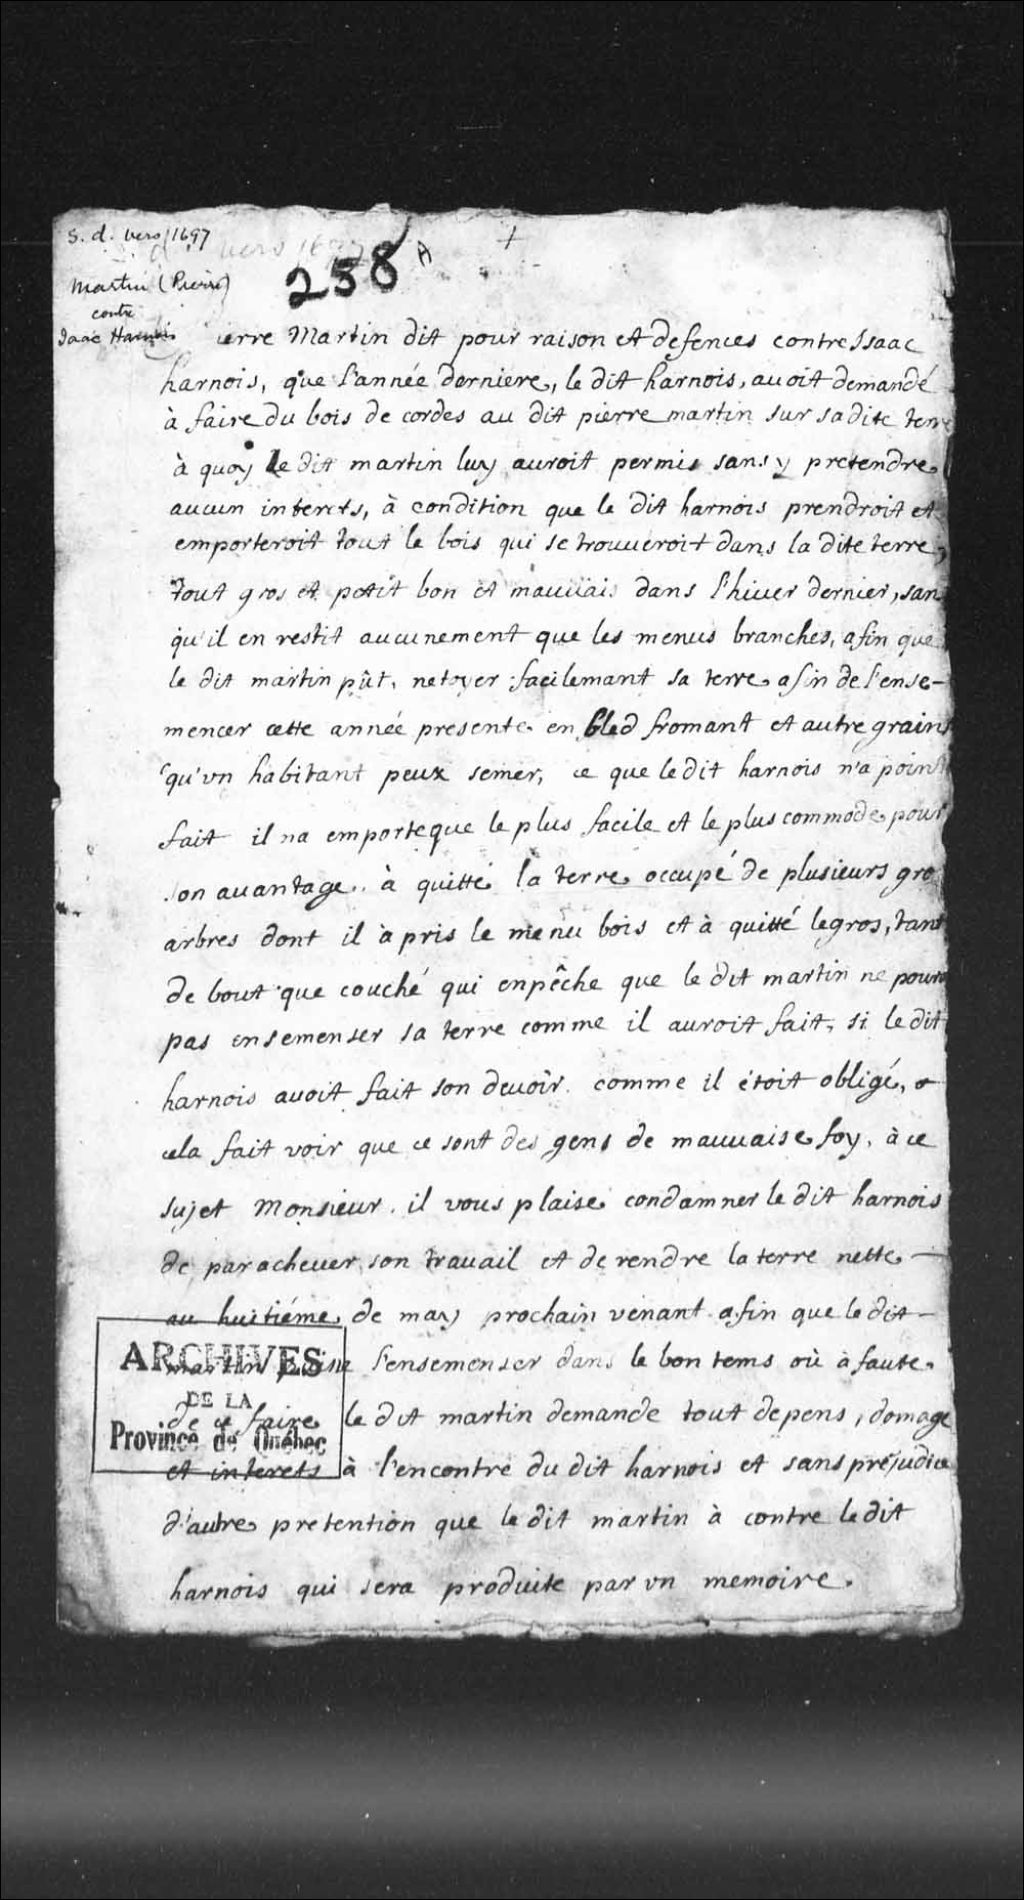 s. d. vers 1697
vers 1697
258 A
+
Martin (Pierre)
contre
Isaac Harnois
ierre Martin dit pour raison et defences contre Isaac
harnois, que l'année derniere, le dit harnois, avoit demandé
à faire du bois de cordes au dit pierre martin sur sa dite terre
à quoy le dit martin luy auroit permis sans y pretendre
aucun interets, à condition que le dit harnois prendroit et
emporteroit tout le bois qui se trouueroit dans la dite terre,
tout gros et petit bon et mauuais dans l'hiuer dernier, san
qu'il en restit aucunement que les menus branches, afin que
le dit martin pût, netoyer facilemant sa terre afin de l'ense-
mencer cette année presente en bled fromant et autre grains
qu'vn habitant peux semer, ce que le dit harnois n'a point
fait il na emporte que le plus facile et le plus commode pour
son auantage.. à quitté la terre occupé de plusieurs gro
arbres dont il à pris le menu bois et à quitté le gros, tant
de bout que couché qui enpêche que le dit martin ne poura
pas ensemenser sa terre comme il auroit fait, si le dit
harnois avoit fait son deuoir comme il étoit obligé,
cela fait voir que ce sont des gens de mauuaise foy, à ce
sujet Monsieur. il vous plaise condamner le dit harnois
de paracheuer son trauail et de rendre la terre nette —
au huitiéme de may prochain venant afin que le dit —
martin puisse l'ensemenser dans le bon tems où à faute
de ce faire le dit martin demande tout depens, domage
et interets à l'encontre du dit harnois et sans préjudice
d'autre pretention que le dit martin à contre le dit
harnois qui sera produite par vn memoire.
ARCHIVES
DE LA
Province de Québec